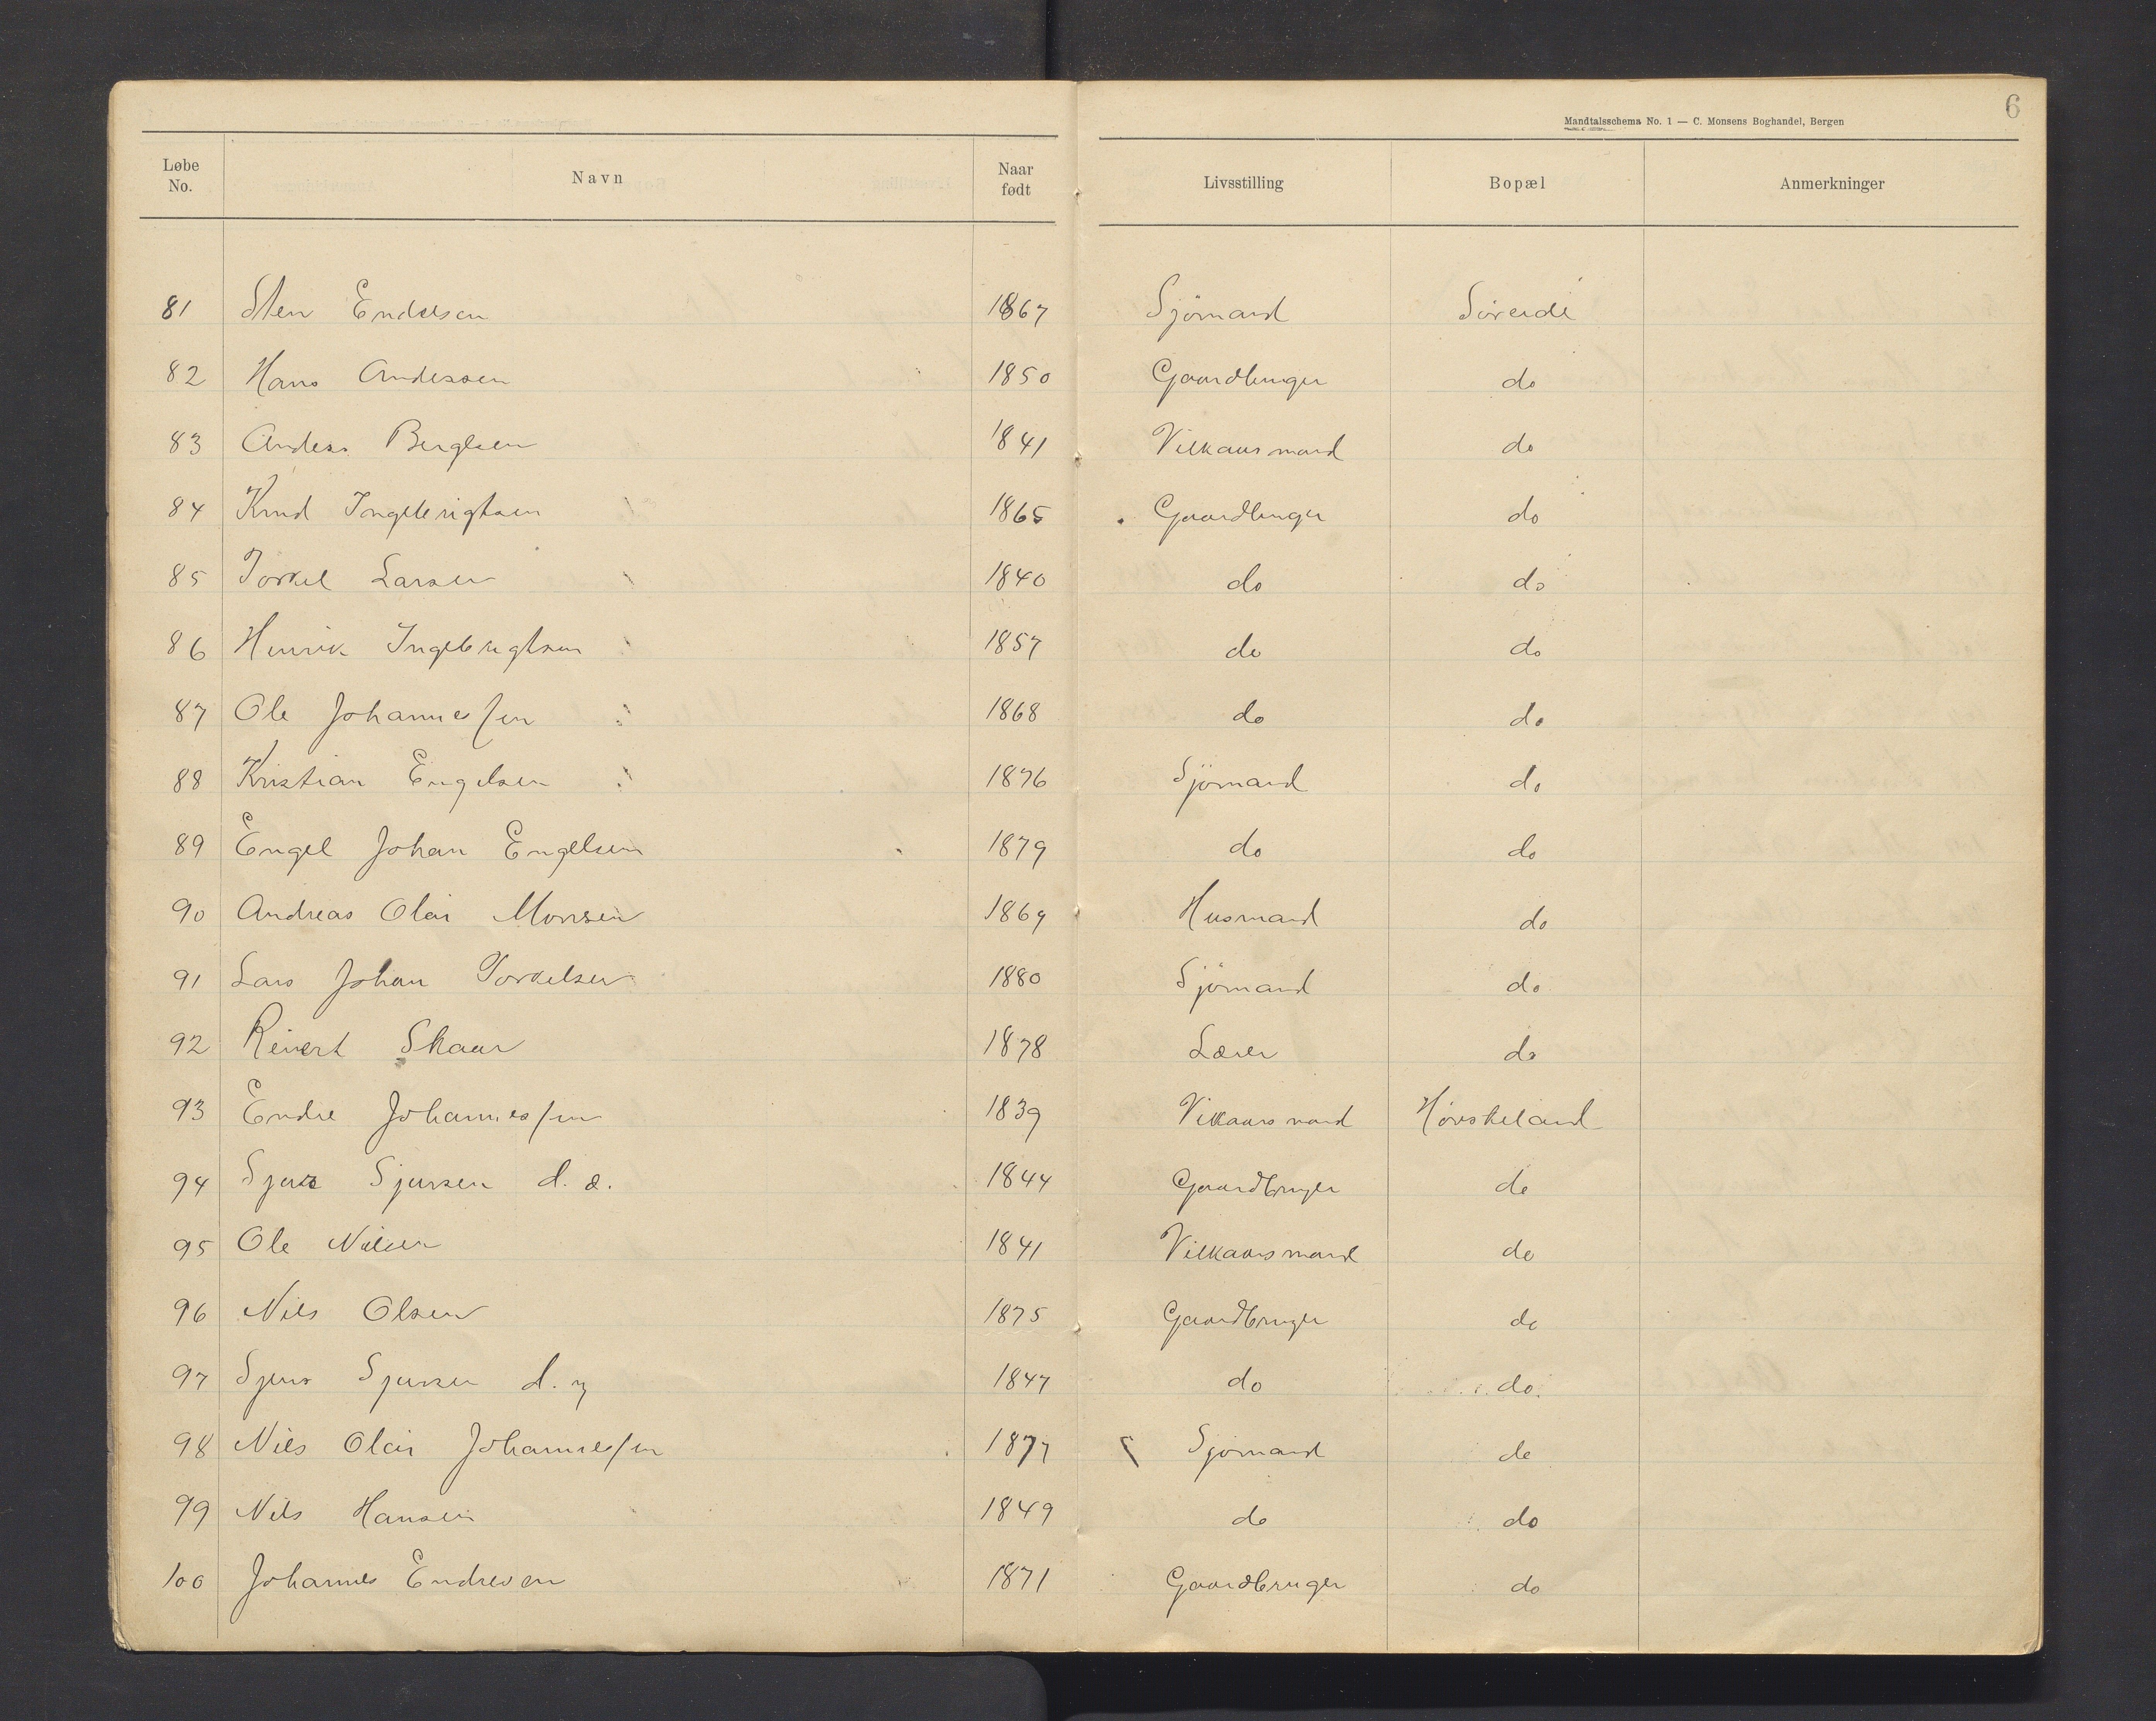 6
Mandtalsschema No. 1 — C. Monsens Boghandel, Bergen
Løbe No. Navn Naar født Livsstilling Bopæl Anmerkninger
81 Sten Endresen 1867 Sjömand Söreide
82 Hans Anderssen 1850 Gaardbruger do
83 Anders Berglsen 1841 Vilkaarsmand do
84 Knud Ingebrigtsen 1865 Gaardbruger do
85 Torkel Larsen 1840 do do
86 Henrik Ingebrigtsen 1857 do do
87 Ole Johannessen 1868 do do
88 Kristian Engelsen 1876 Sjömand do
89 Engel Johan Engelsen 1879 do do
90 Andreas Olai Monsen 1869 Husmand do
91 Lars Johan Torkelsen 1880 Sjömand do
92 Reinert Skaar 1878 Lærer do
93 Endre Johannessen 1839 Vilkaarsmand Hövskeland
94 Sjur Sjursen d. æ. 1844 Gaardbruger do
95 Ole Nilsen 1841 Vilkaarsmand do
96 Nils Olsen 1875 Gaardbruger do
97 Sjur Sjursen d. y 1847 do do.
98 Nils Olai Johannessen 1877 Sjömand do
99 Nils Hansen 1849 do do
100 Johannes Endresen 1871 Gaardbruger do